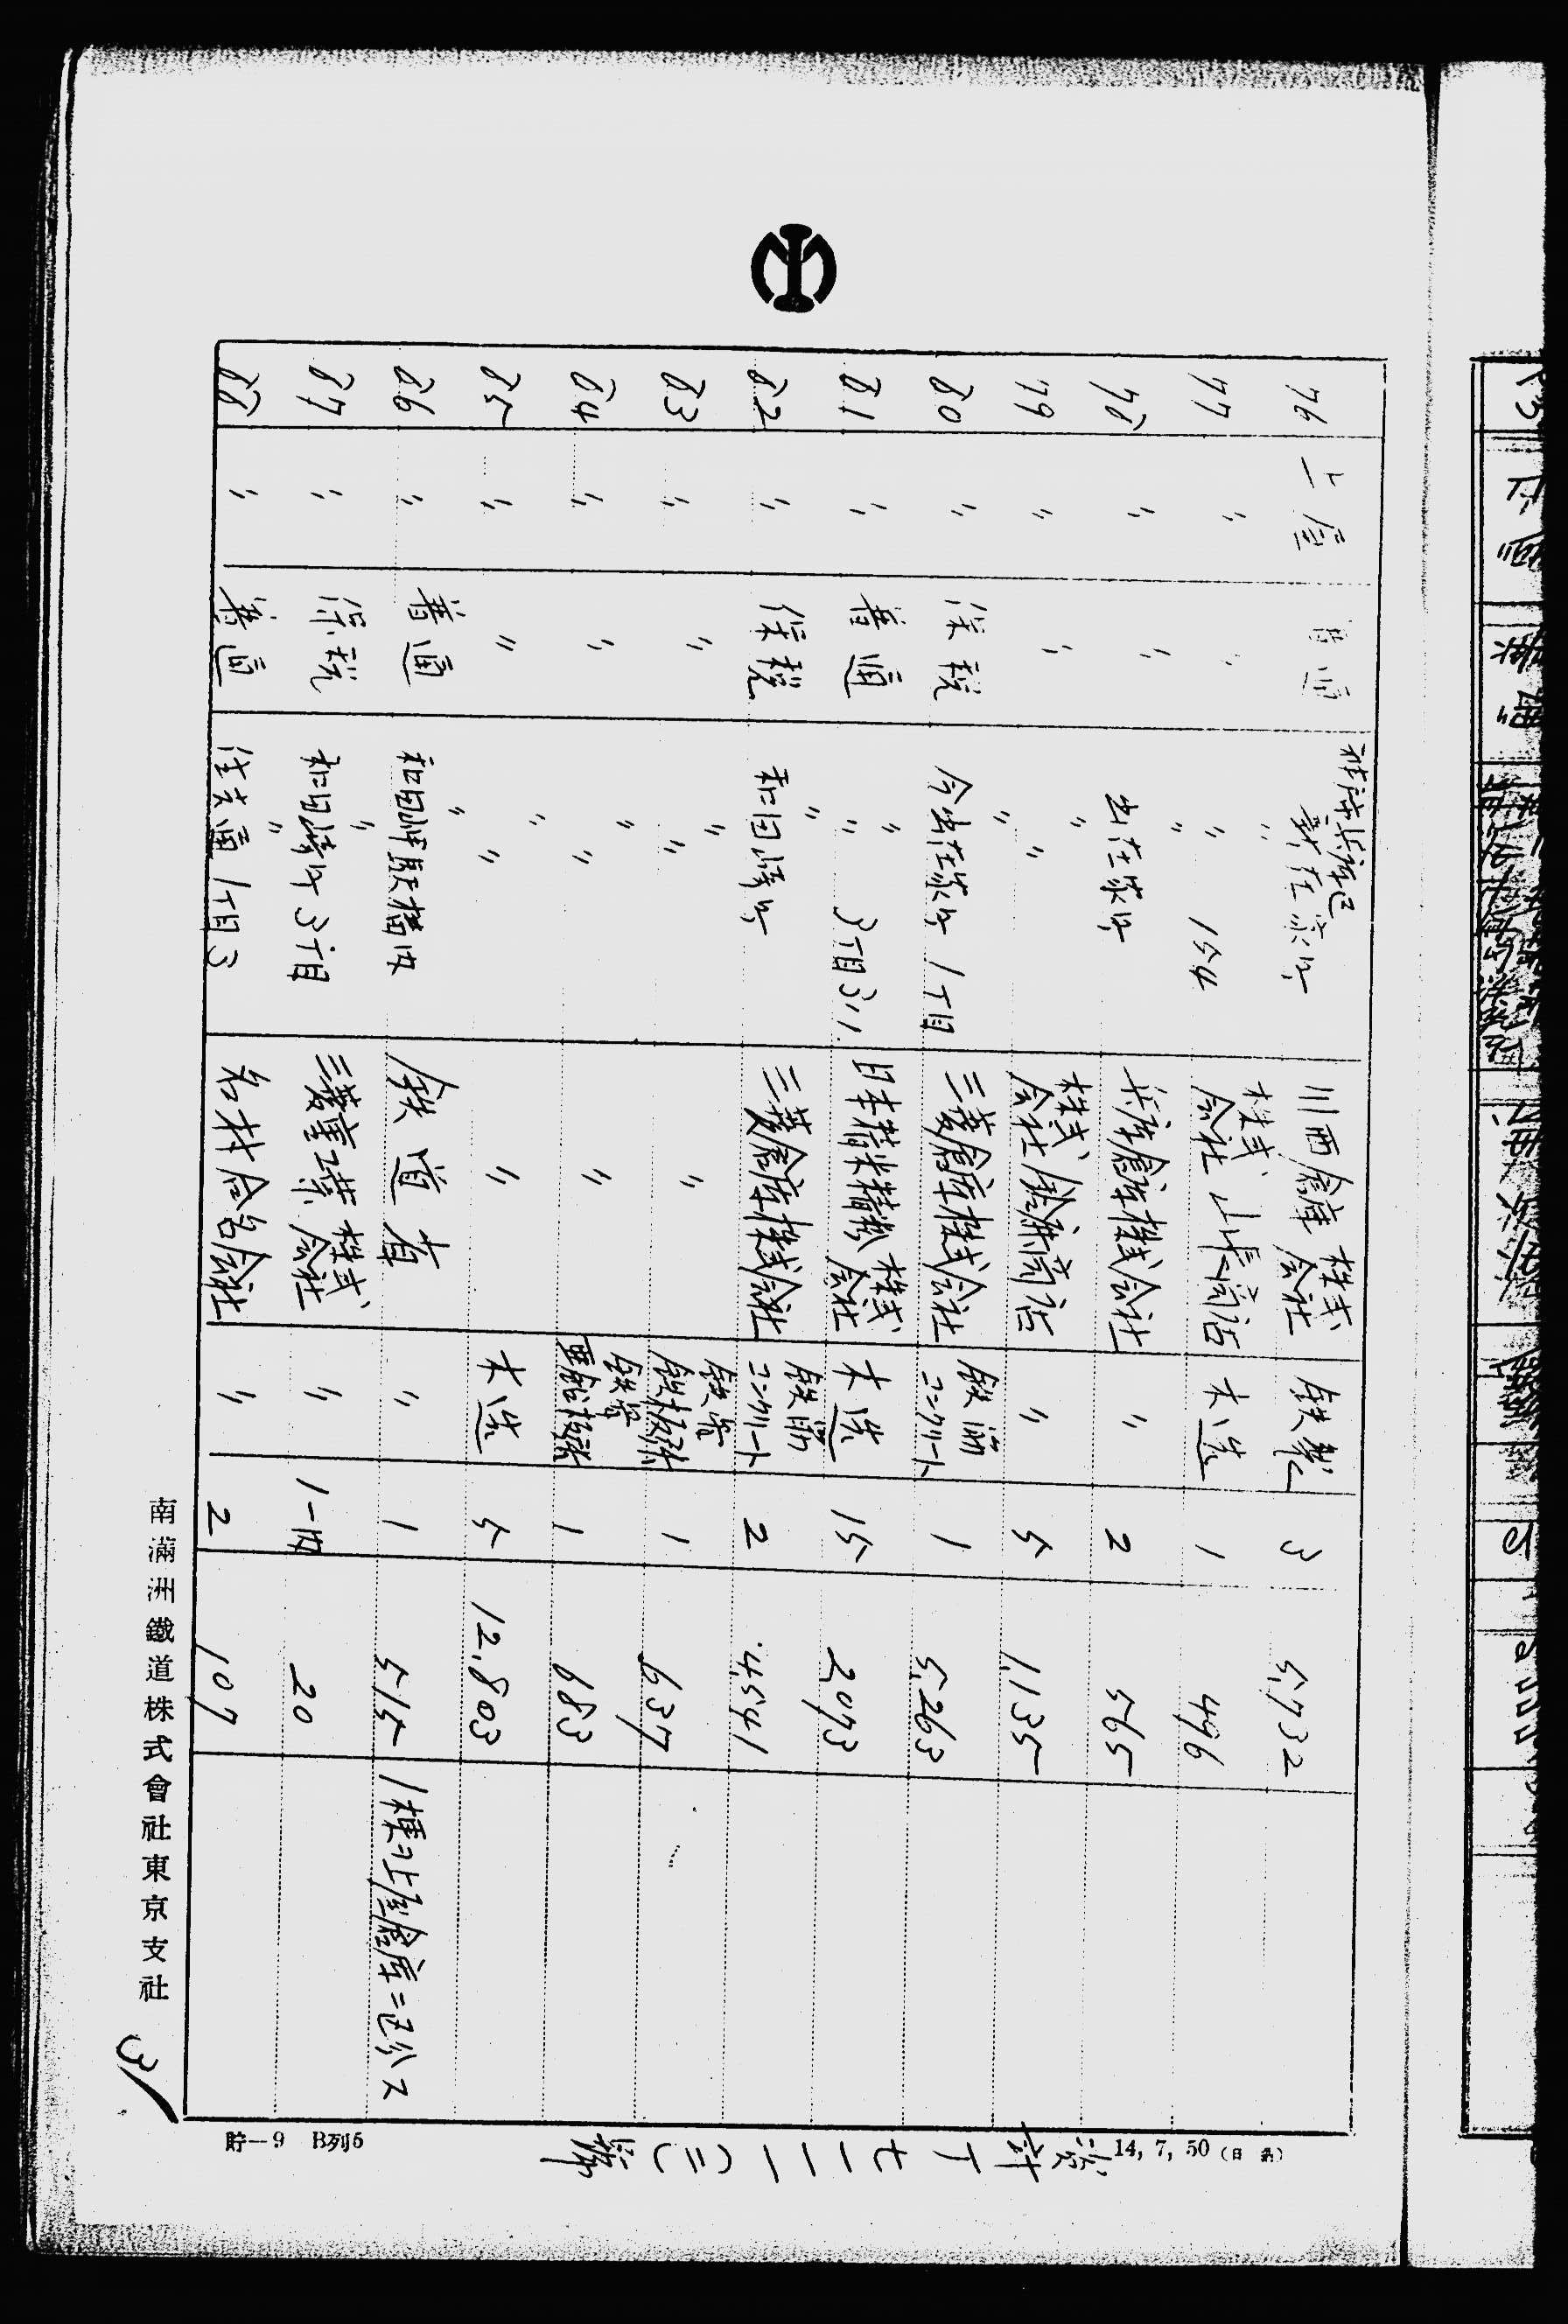 76 上屋 普通 神戸兵庫区新在家町 川西倉庫株式会社 鉄製 3 5,732
77 〃 〃 〃 〃 154 株式会社 山長商店 木造 1 496
78 〃 〃 〃 出在家町 兵庫倉庫株式会社 〃 2 565
79 〃 〃 〃 〃 株式会社 鈴廉商店 〃 5 1,135
80 〃 保税 〃 今出在家町 1丁目 三菱倉庫株式会社 鉄筋コンクリート 1 5,263
81 〃 普通 〃 〃 3丁目 日本精米精粉株式会社 木造 15 2,093
82 〃 保税 〃 和田崎町 三菱倉庫株式会社 鉄筋コンクリート 2 4,541
83 〃 〃 〃 〃 〃 鉄骨鉄板張 1 637
84 〃 〃 〃 〃 〃 鉄骨亜鉛板張 1 683
85 〃 〃 〃 〃 〃 木造 5 12,803
86 〃 普通 〃 和田岬駅構内 鉄道省 〃 1 515 1棟ヲ上屋倉庫ニ区分ス
87 〃 保税 〃 和田崎町3丁目 三菱重工業株式会社 〃 20
88 〃 普通 〃 1丁目3 名村合名会社 〃 2 107
南滿洲鐵道株式會社東京支社
31
貯—9 B列5
14, 7, 50